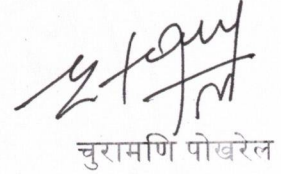 चुरामणि पोखरेल